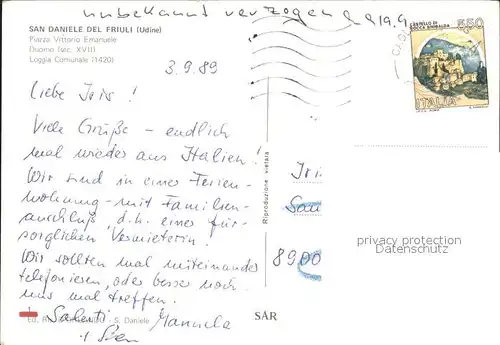 unbekannt verzogen
SAN DANIELE DEL FRIULI (Udine)
Piazza Vittorio Emanuele
Duomo (sec. XVIII)
Loggia Comunale (1420)
3.9.89
Liebe Iris!
Viele Grüße – endlich
mal wieder aus Italien!
Wir sind in einer Ferien-
wohnung – mit Familien-
anschluß, d.h. einer für-
sorglichen Vermieterin!
Wir sollten mal miteinander
telefonieren, oder besser noch
uns mal treffen.
Manuela
S. Daniele
SAR
Riproduzione vietata
CASTELLO DI
ROCCA SINIBALDA
550
ITALIA
Iris
San
8900
privacy protection
Datenschutz